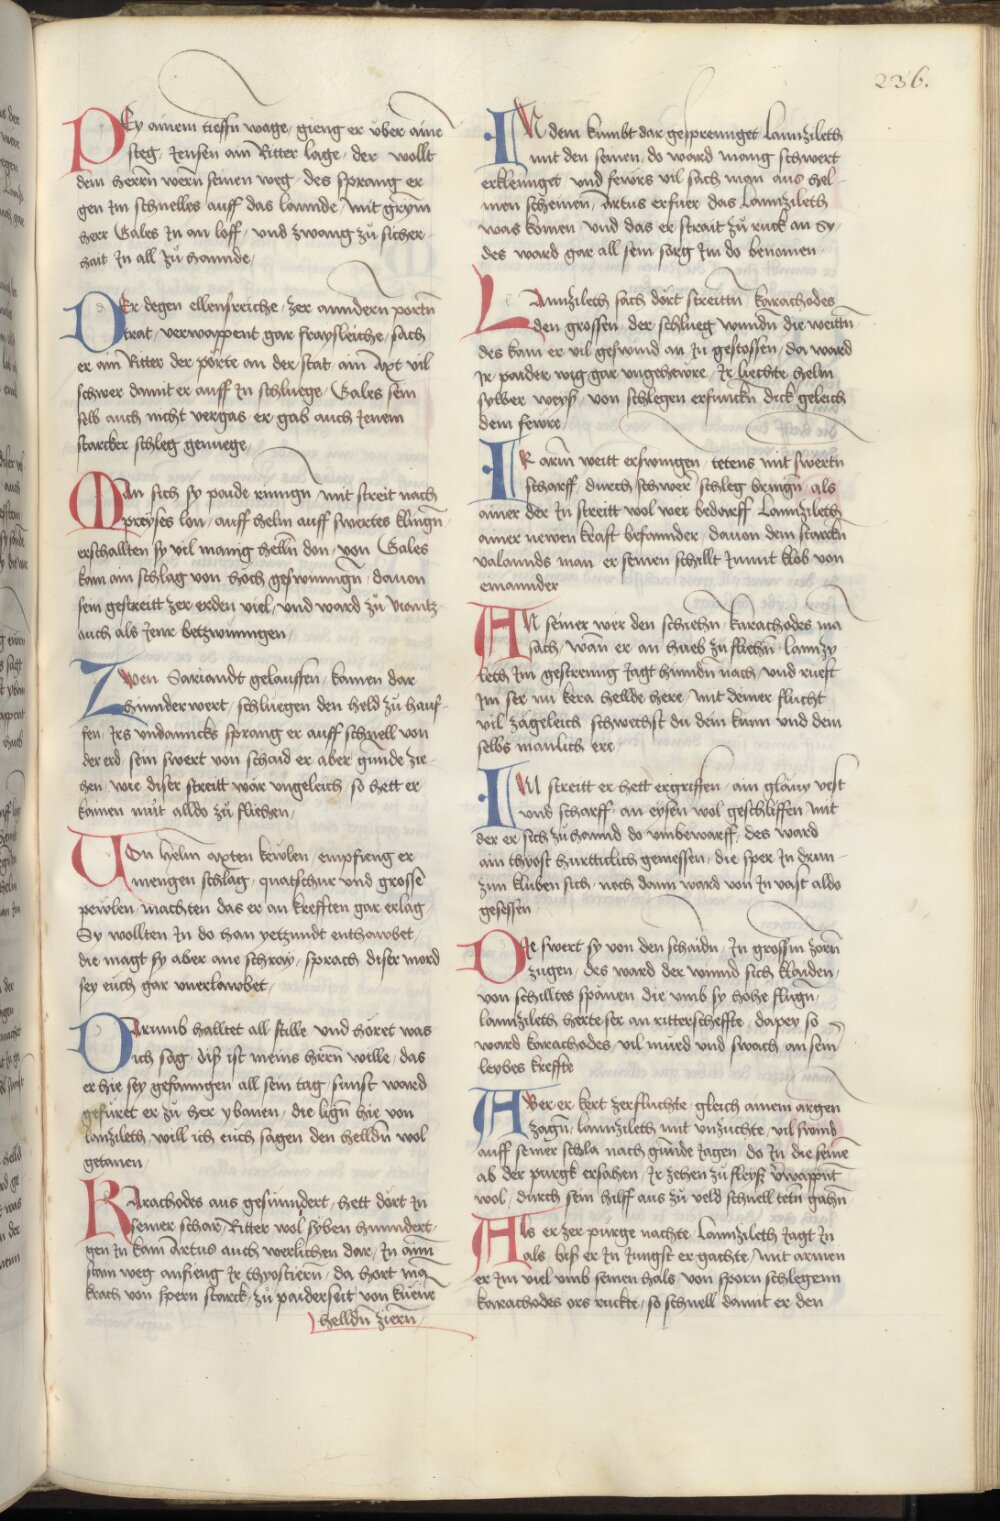 236.
PEy ainem tieffn wage, gieng er über aine
steg, Jensen ain Ritter lage, der wollt
dem herrn wern seinen weg, des sprang er
gen Im schnelles auff das lannde, mit grym
herr Gales In an loff, und zwang zů sicher-
hait In all zů hannde,
DEr degen ellensreiche, zer anndern portn
trat, verwappent gar frayslreiche, sach
er ain Ritter der pörte an der stat, ain Axt vil
schwer damit er auff In schluege, Gales sein
selb auch nicht vergas, er gab auch Jenem
starcker schleg genuege,
MAn sich sy paide ringn, mit streit nach
preyses lon, auff helm auff swertes klingn,
erschallten sy vil manig hellñ don, von Gales
kam ain schlag von hoch geswunngñ, dauon
sein gestreitt zer erden viel, und ward zů
auch als Jenr betzwungen,
Zwen Sariandt gelauffen, kamen dar
hynnderwert, schluegen den held zů hauf-
fen, Irs vndannicks sprang er auff schnell von
der erd, sein swert von schaid er aber gunde zie-
hen, wie diser streitt wär vngeleich, so hett er
kainen müt alldo zů fliehen,
VOn helm axten kewlen, empfieng er
mengen schlag, quatschur und grosse
pewlen, machten das er an krefften gar erlag
Sy wollten In do han yetzundt enthawbet,
die magt sy aber ane schray, sprach diser mord
sey euch gar vnerlawbet,
DArumb halltet all stille und höret was
ich sag, diß ist meins herrn wille, das
er hie sey gefanngen all sein tag, sunst ward
gefüret er zů her ybanen, die lign hie von
lanzileth, will ich euch sagen den helldñ wol
getanen,
KArachodes aus gesunndert, hett dört In
seiner schar, Ritter wol syben hunndert,
gen In kam Artus auch werlichen dar, In aim
stain weg anfieng Ir thyostiern, da hort mã
krach von spern starck, zů paiderseit von küene
helldñ ziern,
IN dem kumbt dar gesprennget Lannzileth
mit den seinen, do ward mang schwert
erklennget und fewrs vil sach man aus hel-
men scheinen, Artus erfuer das Lannzileth
was komen, und das er strait zů ruck an Sy,
des ward gar all sein sorg Im do benomen,
LAnnzileth sach dört streittn, karachodes
den grossen, der schlueg wundñ die weitn
des kam er vil geswind an In gestossen, da ward
Ir paider wig gar ungehewre, Ir liechte helm
sylber weyß, von schlegen erfunckñ dick geleich
dem fewre,
IR arm weitt erswingen, tetens mit swertn
scharff, durch schwer schleg bringñ, als
ainer der In streitt wol wer bedarff Lannzileth
ainer newen krafft befannder, dauon dem starckñ
valannds man er seinen schillt Inmit klob von
einannder
AN seiner wer den schiehñ, karachodes ma
sach, wan er an hueb zů fliehñ, lannzy
leth Im gestrenng Jagt hinndn nach, und rueft
Im ser nu kera hellde here, mit deiner flucht
vil zägeleich schwechst du dein kunn und dein
selbs manlich ere,
IM streitt er hett ergriffen, ain gläny vest
und scharff, an eysen wol geschliffen, mit
der er sich zů hannd do umbewarff, des ward
ain thyost hurttiklich gemessen, die sper In drun-
zun kluben sich, noch dann ward von In vast aldo
gesessen,
DIe swert sy von den schaidn, In grossm zorn
zugen, des ward der wund sich klaiden,
von schilltes spänen die umb sy hohe flugñ,
lannzileth herte ser an ritterscheffte, dapey so
ward karachodes, vil mued und swach an seim
leybes kreffte
ABer er kert zerfluchte, gleich ainem argen
zagñ, lannzileth mit vnzuchte, vil swind
auff seiner schla nach gunde Jagen, do In die seinẽ
ab der purgk ersahen, Ir zehen zů fleyß v̈wappnt
wol, durch sein hilff aus zů veld schnell tetn gahñ
ALs er zer purge nachte, lannzileth Jagt In
als, biß er In Jungst ergachte, mit armen
er Im viel umb seinen hals, von sporn schlegenn
karachodes ors ruckte, so schnell damit er den